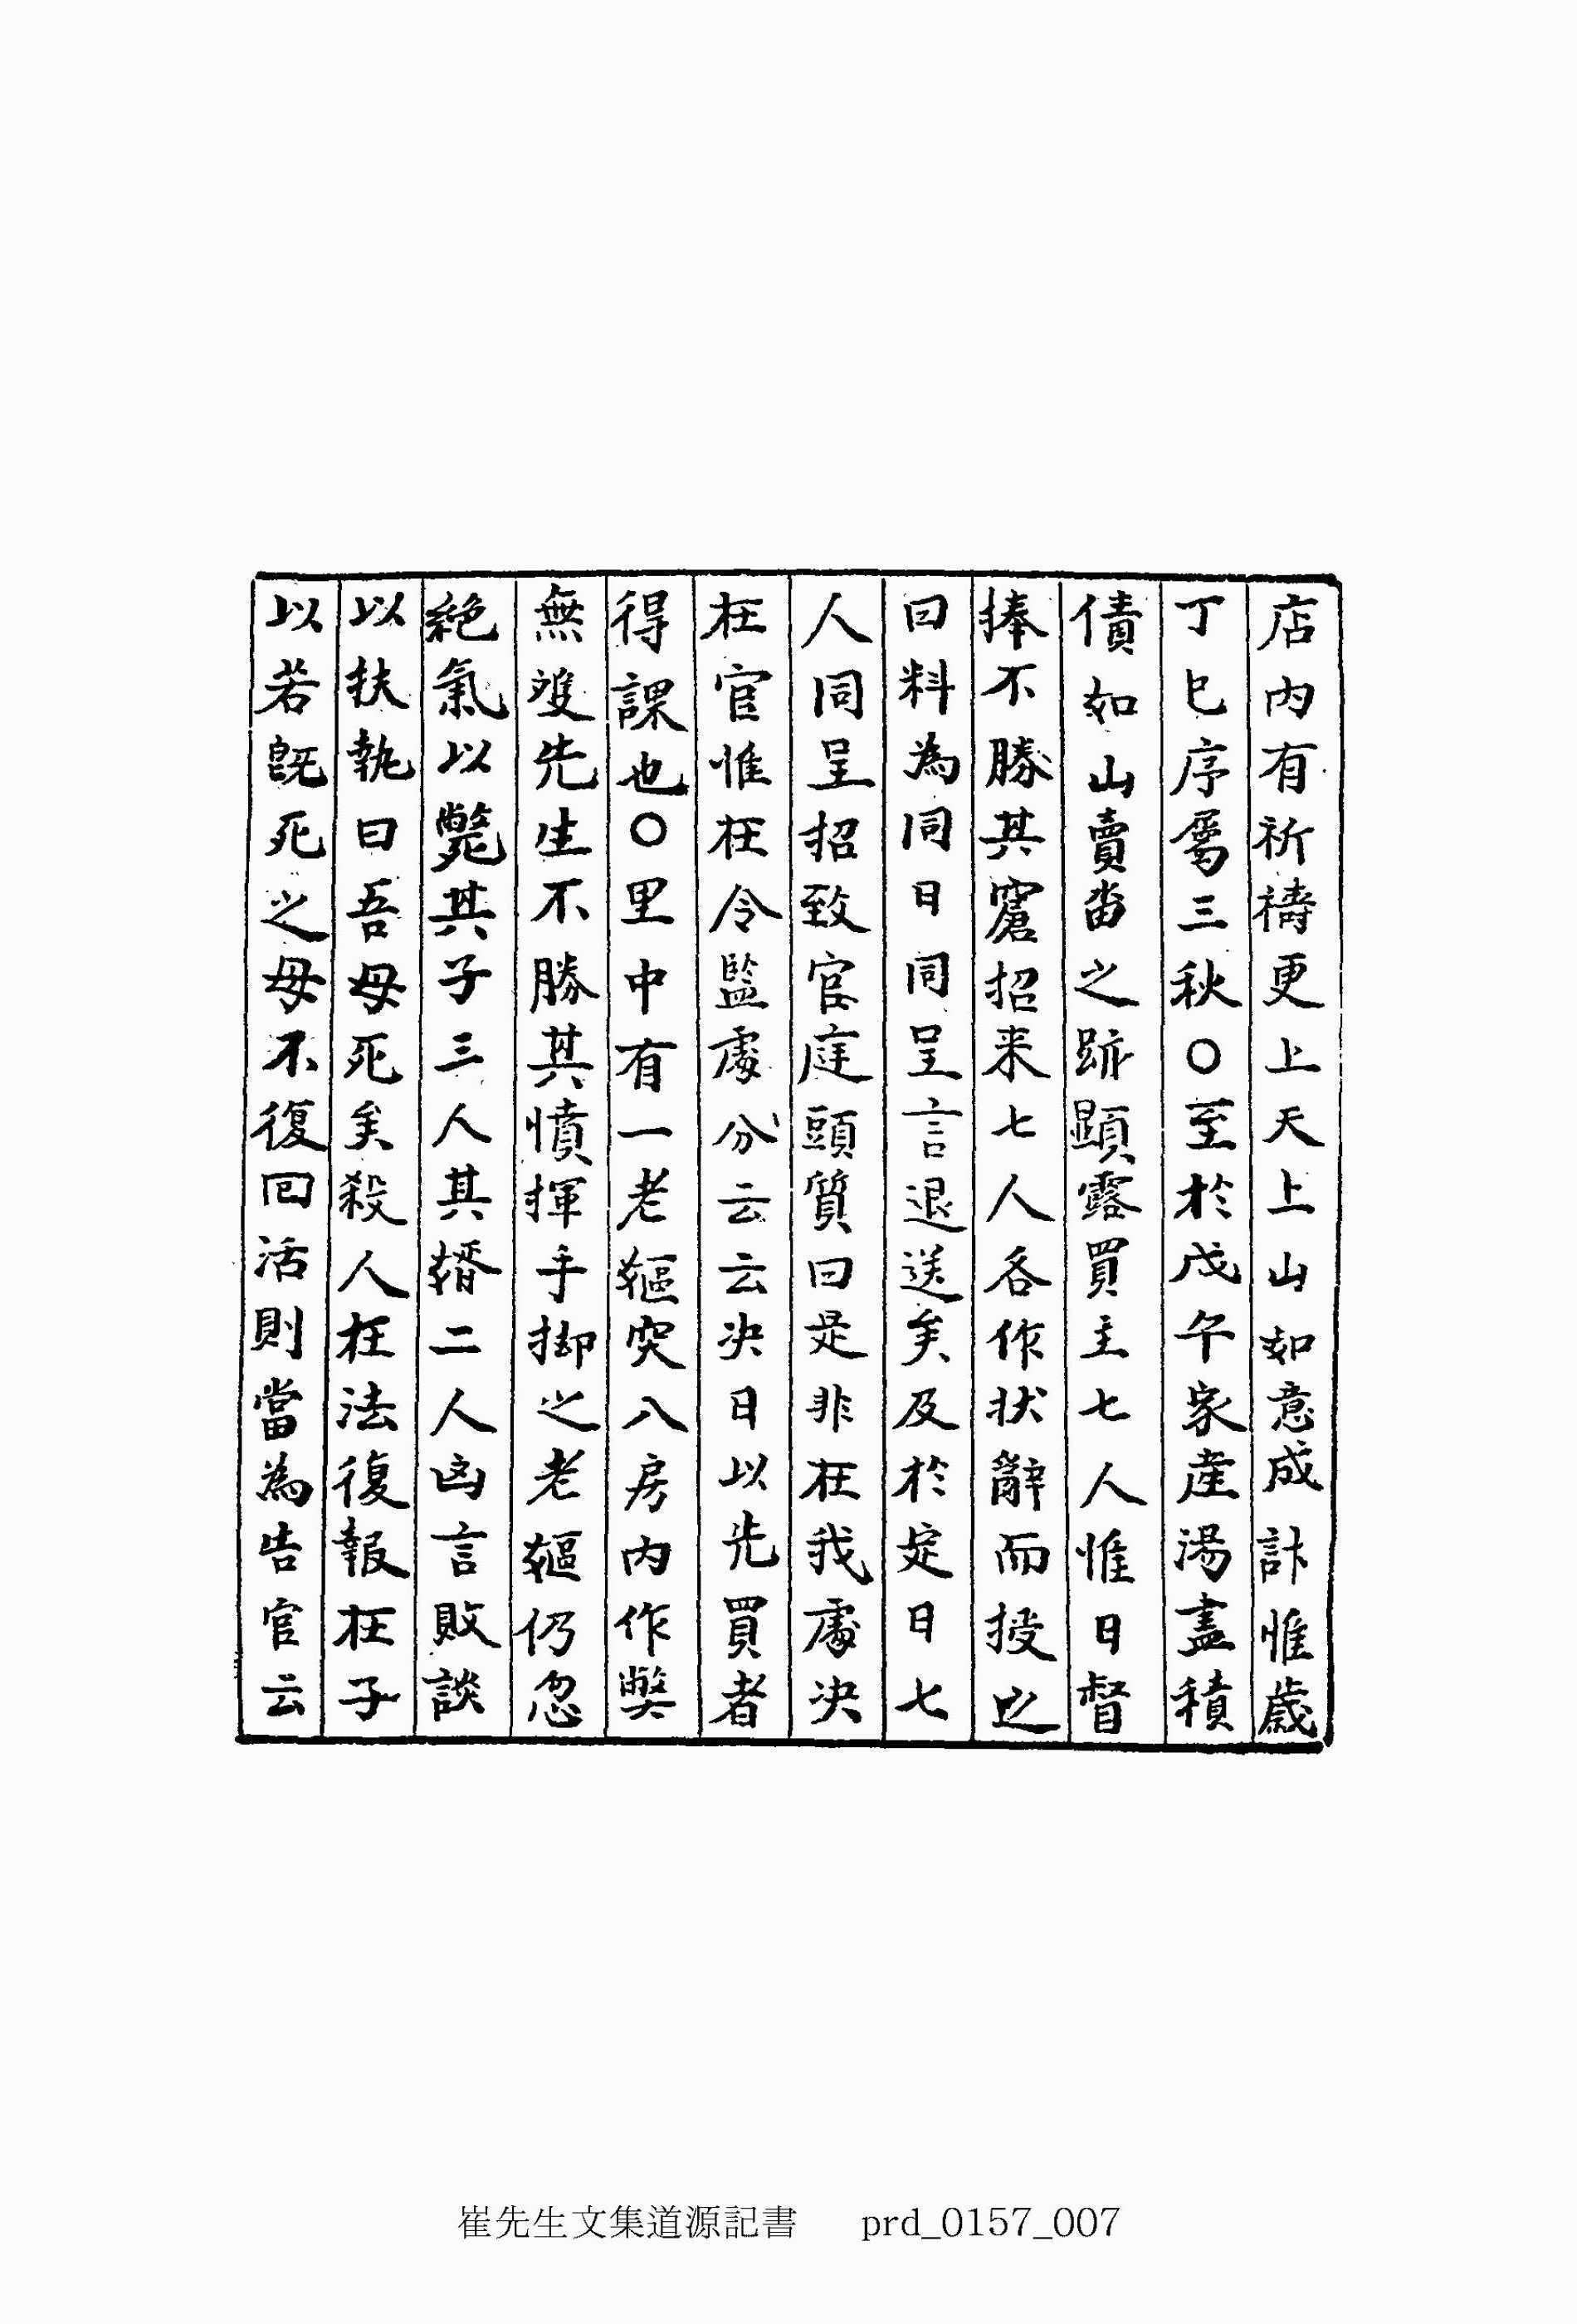 店內有祈禱更上天上山如意成計惟歲
丁巳序屬三秋○至於戊午家產湯盡積
債如山賣畓之跡顯露買主七人惟日督
捧不勝其窘招来七人各作狀辭而授之
曰料為同日同呈言退送矣及於定日七
人同呈招致官庭頭質曰是非在我處决
在官惟在令監處分云云决日以先買者
得課也○里中有一老嫗突入房內作獘
無雙先生不勝其憤揮手擲之老嫗仍忽
絕氣以斃其子三人其婿二人凶言敗談
以扶執曰吾母死矣殺人在法復報在子
以若旣死之母不復回活則當為告官云
崔先生文集道源記書 prd_0157_007